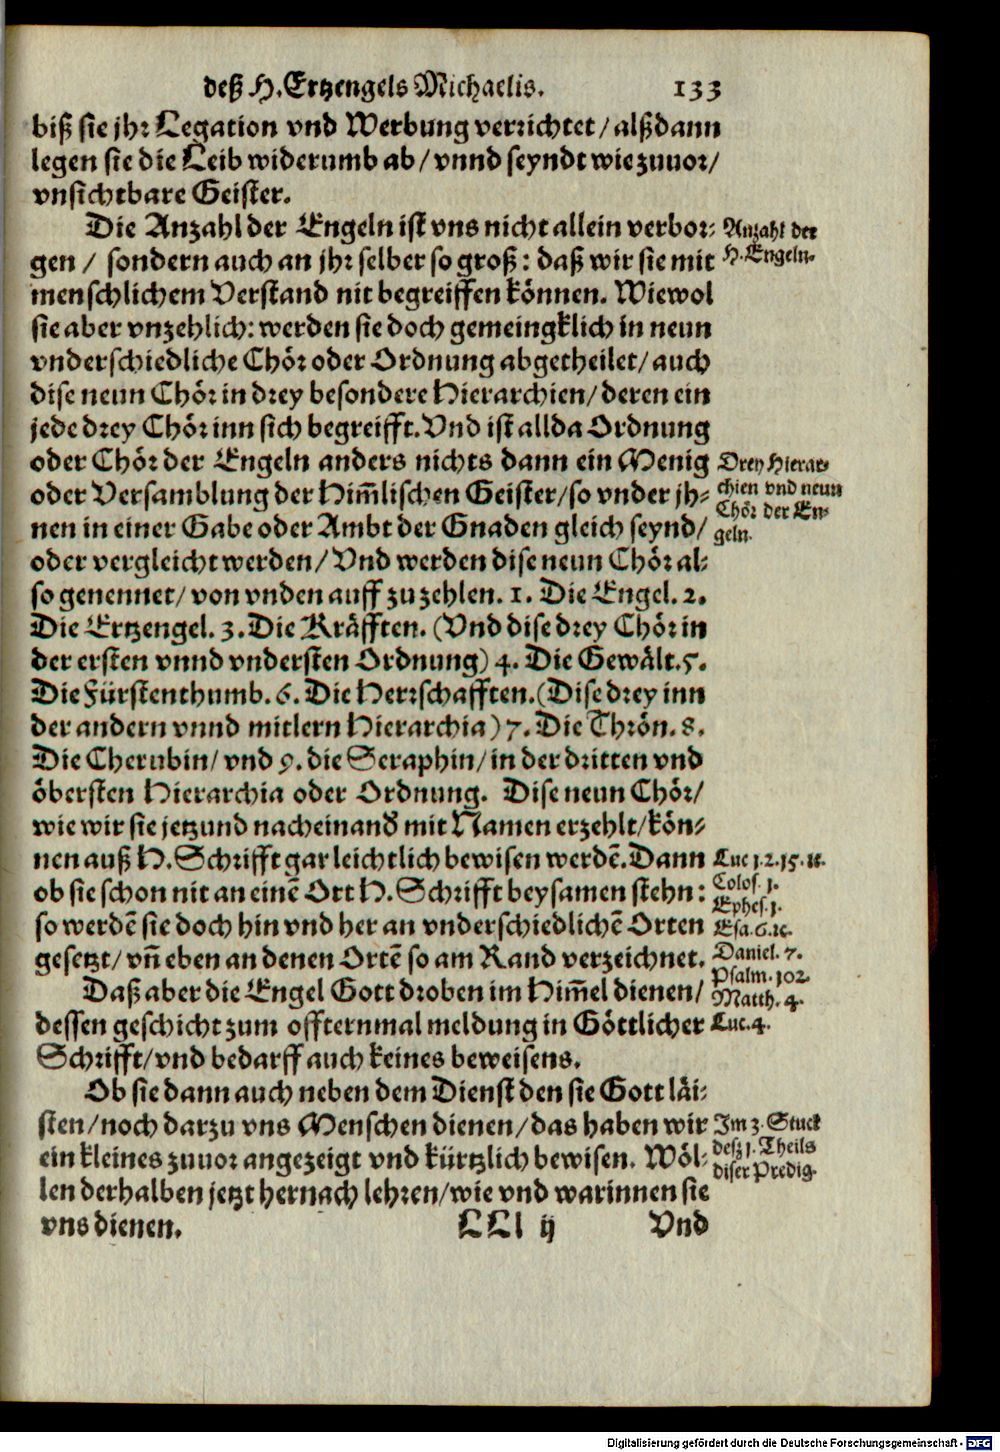 deß H. Ertzengels Michaelis. 133
biß sie jhr Legation vnd Werbung verrichtet / alßdann
legen sie die Leib widerumb ab / vnnd seyndt wie zuuor /
vnsichtbare Geister.
Die Anzahl der Engeln ist vns nicht allein verbor-
gen / sondern auch an jhr selber so groß: daß wir sie mit
menschlichem Verstand nit begreiffen können. Wiewol
sie aber vnzehlich: werden sie doch gemeingklich in neun
vnderschiedliche Chör oder Ordnung abgetheilet / auch
dise neun Chör in drey besondere Hierarchien / deren ein
jede drey Chör inn sich begreifft. Vnd ist allda Ordnung
oder Chör der Engeln anders nichts dann ein Menig
oder Versamblung der Him̃lischen Geister / so vnder jh-
nen in einer Gabe oder Ambt der Gnaden gleich seynd /
oder vergleicht werden / Vnd werden dise neun Chör al-
so genennet / von vnden auff zu zehlen. 1. Die Engel. 2.
Die Ertzengel. 3. Die Kräfften. (Vnd dise drey Chör in
der ersten vnnd vndersten Ordnung) 4. Die Gewält. 5.
Die Fürstenthumb. 6. Die Herrschafften. (Dise drey inn
der andern vnnd mitlern Hierarchia) 7. Die Thrön. 8.
Die Cherubin / vnd 9. die Seraphin / in der dritten vnd
öbersten Hierarchia oder Ordnung. Dise neun Chör /
wie wir sie jetzund nacheinand mit Namen erzehlt / kön-
nen auß H. Schrifft gar leichtlich bewisen werdẽ. Dann
ob sie schon nit an einẽ Ort H. Schrifft beysamen stehn:
so werdẽ sie doch hin vnd her an vnderschiedlichẽ Orten
gesetzt / vñ eben an denen Ortẽ so am Rand verzeichnet.
Daß aber die Engel Gott droben im Him̃el dienen /
dessen geschicht zum offternmal meldung in Göttlicher
Schrifft / vnd bedarff auch keines beweisens.
Ob sie dann auch neben dem Dienst den sie Gott läi-
sten / noch darzu vns Menschen dienen / das haben wir
ein kleines zuuor angezeigt vnd kürtzlich bewisen. Wöl-
len derhalben jetzt hernach lehren / wie vnd warinnen sie
vns dienen. LLl ij Vnd
Anzahl der
H. Engeln.
Drey Hierar-
chien vnd neun
Chör der En-
geln.
Luc. 1. 2. 15. ꝛc.
Colos. 1.
Ephes. 1.
Esa. 6. ꝛc.
Daniel. 7.
Psalm. 102.
Matth. 4.
Luc. 4.
Im 3. Stuck
deß 1. Theils
diser Predig.
Digitalisierung gefördert durch die Deutsche Forschungsgemeinschaft - DFG